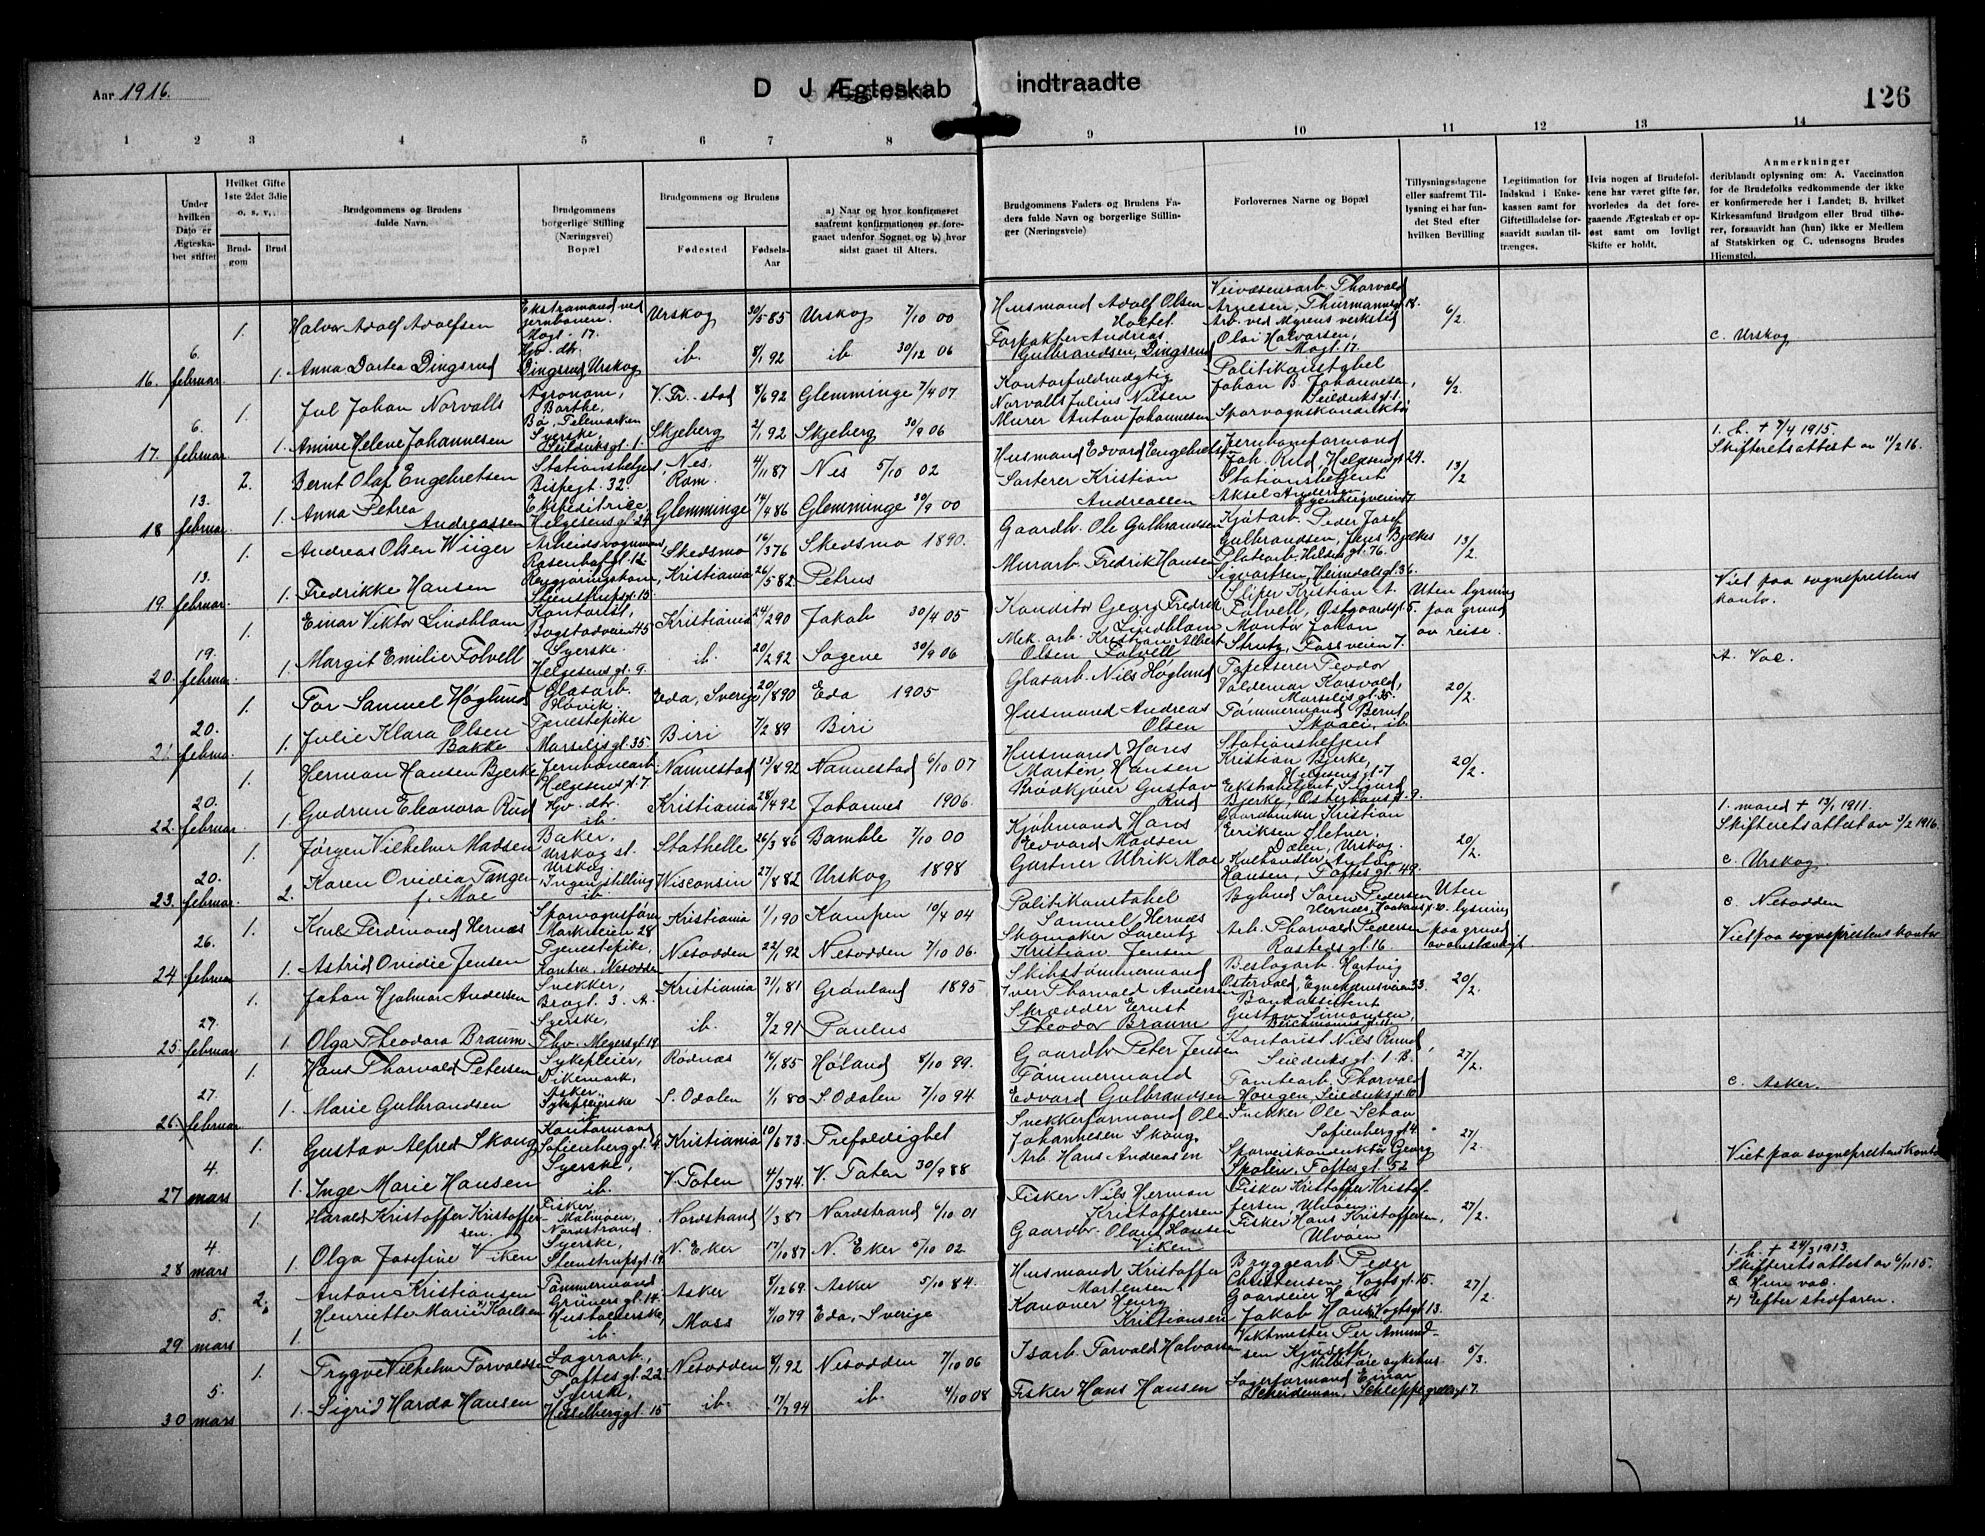 Aar 1916.
D J Ægteskab indtraadte
126
1 2 3 4 5 6 7 8 9 10 11 12 13 14
Under hvilken Dato er Ægteskabet stiftet
Hvilket Gifte 1ste 2det 3die o. s. v.
Brudgom
Brud
Brudgommens og Brudens fulde Navn.
Brudgommens borgerlige Stilling (Næringsvei) Bopæl
Brudgommens og Brudens
Fødested
Fødsels-Aar
a) Naar og hvor konfirmeret saafremt konfirmationen er foregaaet udenfor Sognet og b) hvor sidst gaaet til Alters.
Brudgommens Faders og Brudens Faders fulde Navn og borgerlige Stillinger (Næringsveie)
Forlovernes Navne og Bopæl
Tillysningsdagene eller saafremt Tillysning ei har fundet Sted efter hvilken Bevilling
Legitimation for Indskud i Enkekassen samt for Giftetilladelse forsaavidt saadan tiltrænges.
Hvis nogen af Brudefolkene har været gifte før, hvorledes da det foregaaende Ægteskab er opløst samt om lovligt Skifte er holdt.
Anmerkninger deriblandt oplysning om: A. Vaccination for de Brudefolks vedkommende der ikke er konfirmerede her i Landet; B. hvilket Kirkesamfund Brudgom eller Brud tilhører, forsaavidt han (hun) ikke er Medlem af Statskirken og C. udensogns Brudes Hjemsted.
1. Halvor Adolf Adolfsen Ekstramand ved jernbanen. Urskog 30/5 85 Urskog 7/10 00 Husmand Adolf Olsen Holtet. Veivæsensarb. Thorvald Arnesen, Thurmannsgt 18. Arb. ved Myrens verksted 6/2.
16. 6. februar. 1. Anna Dortea Dingsrud Hjv. dtr. Dingsrud, Urskog ib. 8/1 92 ib. 30/12 06 Forpakter Andreas Gulbrandsen, Dingsrud Olai Halvorsen, c. Urskog
1. Jul Johan Norvalls Agronom, Bø, Telemarken V. Fr.-stad 8/6 92 Glemminge 7/4 07 Kontorfuldmægtig Norvalls Julius Nilsen Politikonstabel Johan B. Johannesen, Seilduksgt. 1. 6/2.
17. 6. februar. 1. Amine Helene Johannesen Syerske, Seilduksgt. 1. Skjeberg 2/1 92 Skjeberg 30/9 06 Murer Anton Johannesen Sporvognskonduktør
2. Bernt Olaf Engebretsen Stationsbetjent Bispegt. 32. Nes, Rom. 4/11 87 Nes 5/10 02 Husmand Edvard Engebretsen Jernbaneformand Joh. Rud, Helgesensgt 24. 13/2 1. h. + 7/4 1915. Skifteretsattest av 11/2 16.
18. 13. februar. 1. Anna Petrea Andreassen Ekspeditrice, Helgesens gt. 24 Glemminge 14/4 86 Glemminge 30/9 00 Sorterer Kristian Andreassen Stationsbetjent Aksel Andersen
1. Andreas Olsen Wiiger Arbeidsvognmand, Rosenhofgt. 12. Skedsmo 16/3 76 Skedsmo 1890. Gaardbr. Ole Gulbrandsen Kjøtarb. Peder Josef Gulbrandsen, Jens Bjelkes gt. 76. 13/2.
19. 13. februar. 1. Fredrikke Hansen Rengjøringskone, Steenstrupsgt. 15. Kristiania 26/5 82 Petrus Murarb. Fredrik Hansen Platearb. Hilding Sigvartsen, Heimdalsgt. 36.
1. Einar Viktor Lindblom Kontorist, Bogstadveien 45 Kristiania 24/2 90 Jakob 30/4 05 Konditor Georg Fredrik Lindblom Sliper Kristian A. Folvell, Østgaardsgt. 5. Uten lysning paa grund av reise. Viet paa sogneprestens kontor.
20. 19. februar. 1. Margit Emilie Folvell Syerske. Helgesens gt. 9. ib. 20/2 92 Sagene 30/9 06 Mek. arb. Kristian Albert Olsen Folvell Montør Johan Strutz, Fossveien 7.
1. Tor Samuel Høglund Glasarb. Høvik. Eda, Sverige 20/8 90 Eda 1905 Glasarb. Nils Høglund Tapetserer Teodor Valdemar Korsvold, Marselisgt. 35. 20/2. A. Vac.
21. 20. februar. 1. Julie Klara Olsen Bakke Tjenestepike Marselisgt. 35. Biri 7/2 89 Biri Husmand Andreas Olsen Tømmermand Bernt ib.
1. Herman Hansen Bjerke Jernbanearb. Helgesens gt. 7 Nannestad 13/8 92 Nannestad 6/10 07 Husmand Hans Martin Hansen Stationsbetjent Kristian Bjerke, Helgesens gt. 7 20/2.
22. 20. februar. 1. Gudrun Eleonora Rud Hjv. dtr. ib. Kristiania 28/4 92 Johannes 1906 Brødkjører Gustav Rud Ekstrabetjent Sigurd Bjerke, Østerhausgt. 9.
1. Jørgen Vilhelm Madsen Baker, Urskog st. Urskog Stathelle 26/3 86 Bamble 7/10 00 Kjøbmand Hans Edvard Madsen Gaardbruker Kristian Eriksen Sletner, Dalen, Urskog. 20/2. 1. mand + 13/1 1911. Skifteretsattest av 3/2 1916.
23. 20. februar. 2. Karen Ovidia Tangen f. Moe Ingen stilling ib. Wisconsin 27/8 82 Urskog 1898 Gartner Ulrik Moe Kulhandler Anton Hansen, Toftes gt. 49. c. Urskog
1. Karl Ferdinand Hernæs Sporvognsfører Markveien 28 Kristiania 1/1 90 Kampen 10/4 04 Politikonstabel Samuel Hernæs Bybud Søren Pedersen Hernæs, Uten lysning paa grund av c. Nesodden
24 26. februar 1. Astrid Ovidie Jensen Tjenestepike, Nesodden Nesodden 22/1 92 Nesodden 7/10 06. Skomaker Lorentz Kristian Jensen Arb. Thorvald Pedersen Rostedsgt. 16 Viet paa sogneprestens kontor
1. Johan Hjalmar Andersen Snekker, Brogt. 3. A. Kristiania 31/1 81 Grønland 1895 Skibstømmermand Iver Thorvald Andersen Beslagarb. Hartvig Østervold, Egnehjemsveien 33. 20/2.
25 27. februar. 1. Olga Theodora Braum Syerske, Thv. Meyersgt. 19 ib. 9/2 91 Paulus Skrædder Ernst Theodor Braum Bankassistent Gustav Simonsen,
1. Hans Thorvald Petersen Sykepleier, Dikemark, Asker. Rødnæs 16/1 85 Høland 8/10 99. Gaardbr. Peter Jensen Kontorist Nils Rund, Seilduksgt. 1. B. 27/2.
26. 27. februar. 1. Marie Gulbrandsen Sykepleierske ib. S. Odalen 1/1 80 S. Odalen 7/10 94 Tømmermand Edvard Gulbrandsen Tomtearb. Thorvald Haugen, Seilduksgt. c. Asker.
1. Gustav Alfred Skong Kontormand Sofienberggt. 4 Kristiania 10/6 73. Trefoldighet Snekkerformand Ole Johannesen Skong. Snekker Ole Schau Sofienberggt 4. 27/2.
27 4. mars 1. Inge Marie Hansen Syerske, ib. V. Toten 4/3 74. V. Toten 30/9 88 Arb. Hans Andersen Sporveiskonduktør Georg Toftes gt. 52 Viet paa sogneprestens kontor
1. Harald Kristoffer Kristoffersen. Fisker, Malmøen, Nordstrand Nordstrand 1/3 87 Nordstrand 6/10 01 Fisker Nils Herman Kristoffersen Fisker Kristoffer Kristoffersen, Ulvøen. 27/2.
28 4. mars 1. Olga Josefine Viken Syerske, Steenstrupsgt. 19. N. Eker 17/10 87 N. Eker 5/10 02 Gaardbr. Olaus Hansen Viken Fisker Hans Kristoffersen, Ulvøen
2. Anton Kristiansen Tømmermand Grüners gt. 14. Asker 8/12 69. Asker 5/10 84. Husmand Kristoffer Mortensen Bryggearb. Peder Christensen, Vogtsgt. 15. 27/2. 1. h. + 24/3 1913. Skifteretsattest av 6/11 15.
29 5. mars 1. Henriette Marie Karlsen Husholderske, ib. Moss 7/10 79 Eda, Sverige Kanoner Henrik Kristiansen Gaardeier Hans Jakob Hansen, Vogtsgt. 13. c Hun vac. +) Efter stedfaren.
1. Trygve Vilhelm Torvaldsen Lagerarb., Toftes gt. 22 Nesodden 8/1 92 Nesodden 7/10 06 Isarb. Torvald Halvorsen Vektmester Per Amundsen Kjuseth, Militære sykehus. 5/3.
30 5. mars 1. Sigrid Harda Hansen Syerske, Hesselberggt. 15 ib. 17/7 94 ib. 4/10 08 Fisker Hans Hansen Lagerformand Einar Scheidemann, Schleppegrellsgt 7.